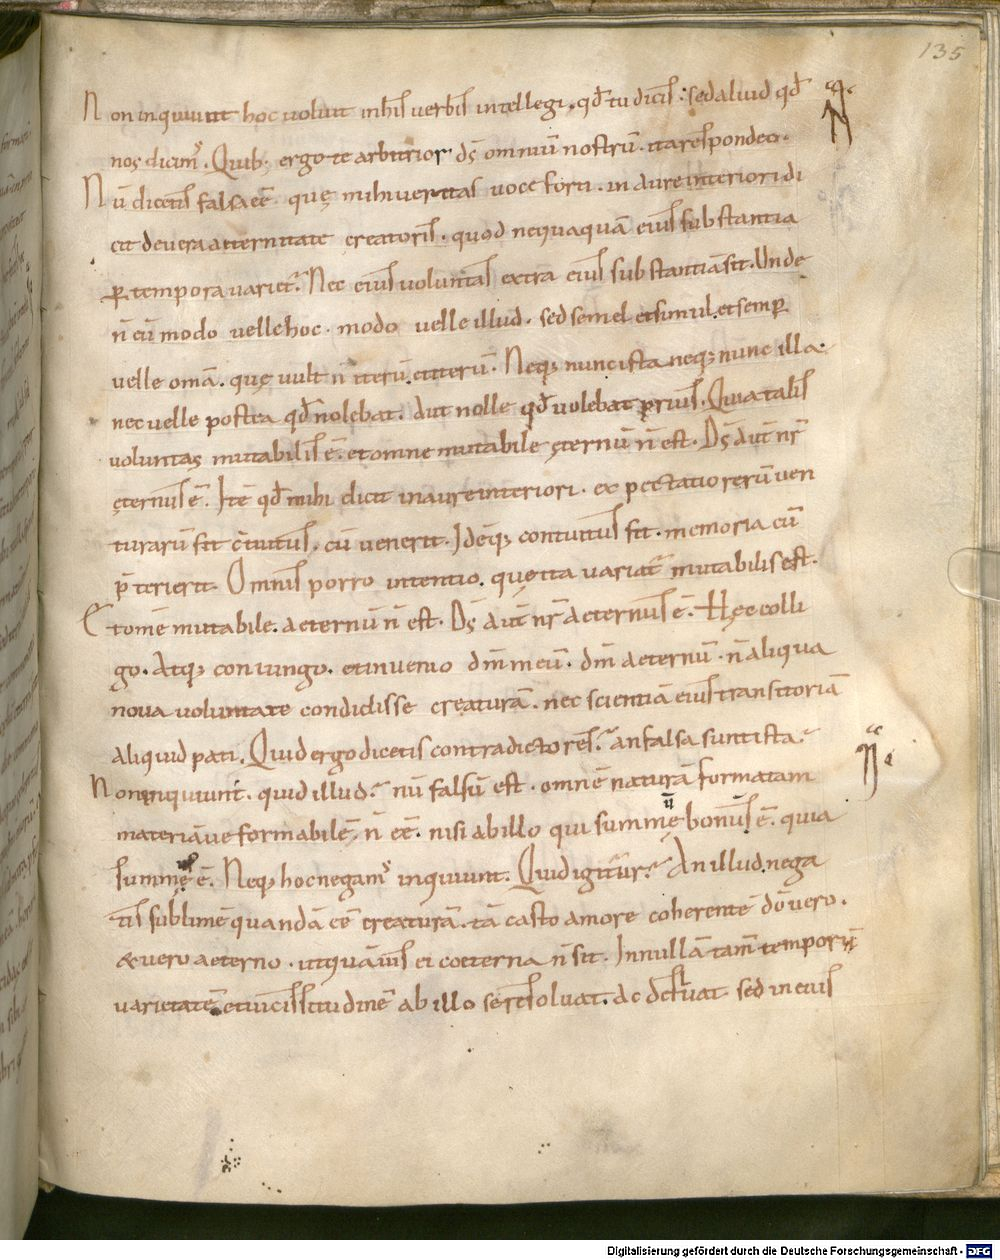 135
Non inquiunt hoc volunt in his verbis intellegi. qd̄ tu dicis: sed aliud qd̄
nos dicim᷒. Quib; ergo te arbitrior ds̄ omniū nostrū. ita respondeo.
Nū dicetis falsa eē quę mihi veritas voce forti. in aure interiori di
cit de vera aeternitate creatoris. quod nequaquā eius substantia
ꝑ tempora variet᷒. Nec eius voluntas extra eius substantiā sit. Unde
n̄ eū modo velle hoc. modo velle illud. sed semel et simul. et semꝑ
velle omā. quę vult n̄ iterū et iterū. Neq; nunc ista neq; nunc illa.
nec velle postea qd̄ nolebat. aut nolle qd̄ volebat prius. Quia talis
voluntas mutabilis ē. et omne mutabile ęternū n̄ est. Ds̄ aut̄ nr̄
ęternus ē. Itē qd̄ mihi dicit in aure interiori. expectatio rerū ven
turarū fit c̄tuitus. cū venerit. Idēq; contuitus fit. memoria cū
p̄terierit. Omnis porro intentio. quę ita variat᷒ mutabilis est.
Et om̄e mutabile. aeternū n̄ est. Ds̄ aut̄ nr̄ aeternus ē. Hęc colli
go. Atq; coniungo. et invenio dm̄ meū. dm̄ aeternū. n̄ aliqua
nova voluntate condidisse creaturā. nec scientiā eius transitoriā
aliquid pati. Quid ergo dicetis contradictores? an falsa sunt ista?
Non inquiunt. quid illud? nū falsū est. omnē naturā formatam
materiāve formabilē n̄ eē. nisi ab illo qui summę bonus ē. quia
summę ē. Neq; hoc negam᷒ inquiunt. Quid igitur? An illud nega
tis sublimē quandā eē creaturā. tā casto amore coherentē dō vero.
& vero aeterno. ut quāvis ei coeterna n̄ sit. In nullā tam̄ temporū
varietatē et vicissitudinē ab illo se resolvat. ac defluat sed in eius
Digitalisierung gefördert durch die Deutsche Forschungsgemeinschaft - DFG